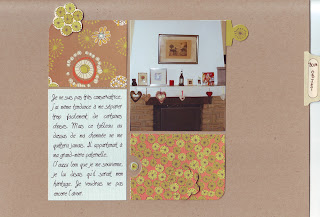 Je ne suis pas très conservatrice,
j'ai même tendance à me séparer
trop facilement de certaines
choses. Mais ce tableau au
dessus de ma cheminée ne me
quittera jamais. Il appartenait à
ma grand-mère paternelle.
D'aussi loin que je me souvienne,
je lui disais qu'il serait mon
héritage. Je voudrais ne pas
encore l'avoir.